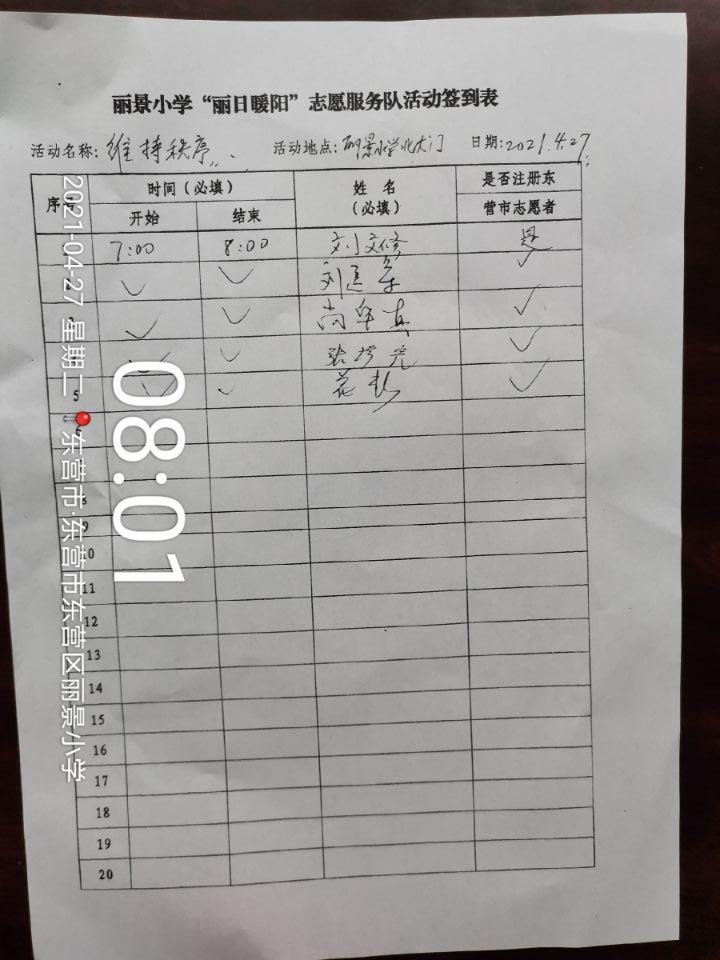 丽景小学“丽日暖阳”志愿服务队活动签到表
活动名称：维持秩序 活动地点：丽景小学北大门 日期：2021.4.27
序号 时间（必填） 姓名（必填） 是否注册东营市志愿者
开始 结束
7:00 8:00 刘文修 是
✓ ✓ 刘 ✓
✓ ✓ 尚 ✓
✓ ✓ 张 ✓
5 ✓ ✓ 花 ✓
6
8
9
10
11
12
13
14
15
16
17
18
19
20
08:01
2021-04-27 星期二 东营市·东营市东营区丽景小学